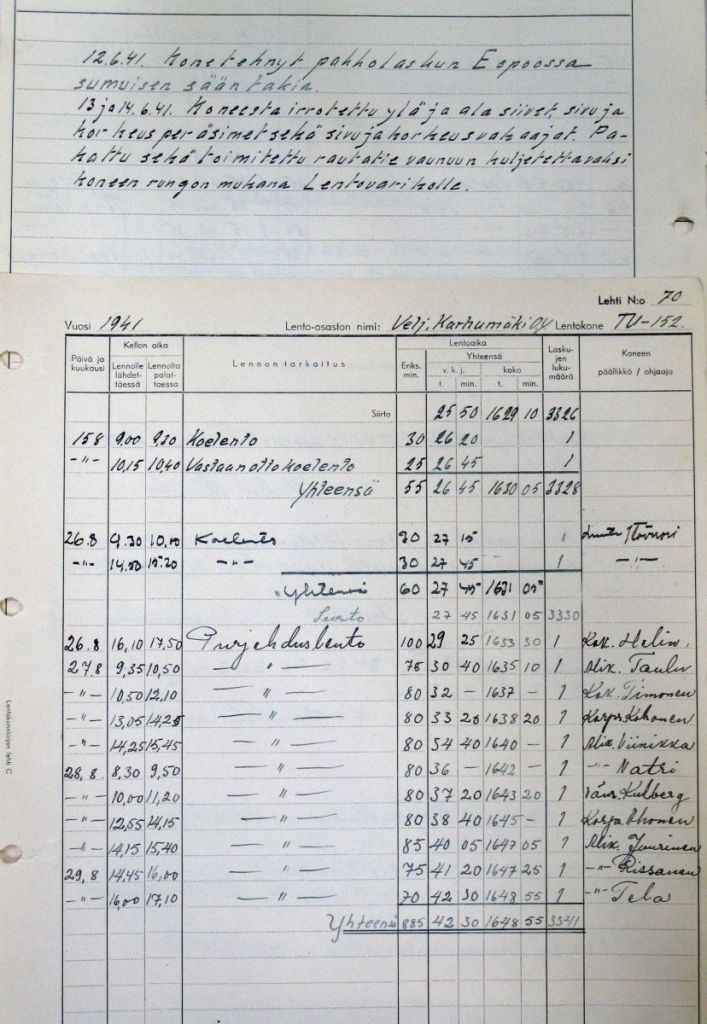 12.6.41. Konetehnyt pakkolaskun Espoossa
sumuisen sään takia.
13 ja 14.6.41. Koneesta irrotettu ylä ja ala siivet, sivu ja
korkeus peräsimet sekä sivu ja korkeusvakaajat. Pa-
kattu sekä toimitettu rautatie vaunuun kuljetettavaksi
koneen rungon mukana Lentovarikolle.
Lehti N:o 70
Vuosi 1941 Lento-osaston nimi: Velj. Karhumäki OY Lentokone TU-152.
Päivä ja kuukausi Kellon aika Lennolle lähdettäessä Lennolta palattaessa Lennon tarkoitus Lentoaika Eriks. min. Yhteensä v. k. j. t. min. koko t. min. Laskujen lukumäärä Koneen päällikkö / ohjaaja
Siirto 25 50 1629 10 3326
15 8 9.00 9.30 Koelento 30 26 20 1
-"- 10,15 10,40 Vastaanottokoelento 25 26 45 1
Yhteensä 55 26 45 1630 05 3328
26.8 9.30 10.00 Koelento 30 27 15 1
-"- 14.50 15.20 -"- 30 27 45 1 -"-
Yhteensä 60 27 45 1631 05
Siirto 27 45 1631 05 3330
26.8 16,10 17,50 Purjehduslento 100 29 25 1633 30 1 Kok. Helin.
27.8 9,35 10,50 — " — 75 30 40 1635 10 1 Alik. Taulu
-"- 10,50 12,10 — " — 80 32 — 1637 — 1 Kok. Timonen
-"- 13,05 14,25 — " — 80 33 20 1638 20 1 Korpr. Kohonen
-"- 14,25 15,45 — " — 80 34 40 1640 — 1 Alik. Viinikka
28.8 8,30 9,50 — " — 80 36 — 1642 — 1 -"- Natri
-"- 10,00 11,20 — " — 80 37 20 1643 20 1 Kulberg
-"- 12,55 14,15 — " — 80 38 40 1645 — 1 Korpr. Ahonen
-"- 14,15 15,40 — " — 85 40 05 1647 05 1 Alik.
29,8 14,45 16,00 — " — 75 41 20 1647 25 1 -"- Rissanen
-"- 16,00 17,10 — " — 70 42 30 1648 55 1 -"- Tela
Yhteensä 885 42 30 1648 55 3341